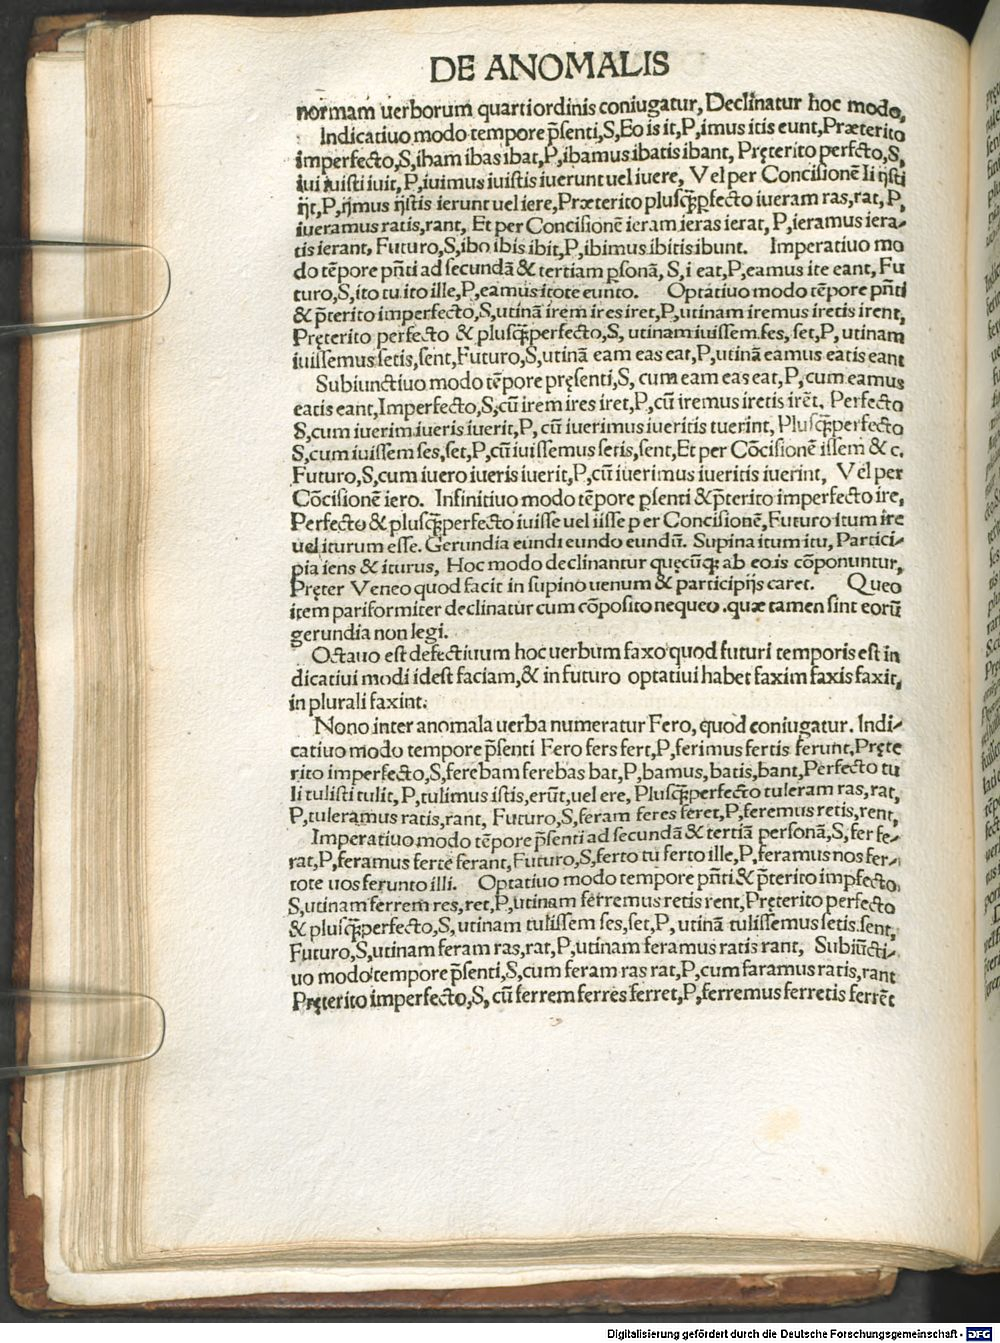 DE ANOMALIS
normam uerborum quarti ordinis coniugatur, Declinatur hoc modo,
Indicatiuo modo tempore p̄senti, S, Eo is it, P, imus itis eunt, Præterito
imperfecto, S, ibam ibas ibat, P, ibamus ibatis ibant, Pręterito perfcto, S,
iui iuisti iuit, P, iuimus iuistis iuerunt uel iuere, Vel per Concisionē Ii ijsti
ijt, P, ijmus ijstis ierunt uel iere, Præterito plusq̃ꝑfecto iueram ras, rat, P,
iueramus ratis, rant, Et per Concisionē ieram ieras ierat, P, ieramus iera-
tis ierant, Futuro, S, ibo ibis ibit, P, ibimus ibitis ibunt. Imperatiuo mo
do tēpore pn̄ti ad secundā & tertiam ꝑsonā, S, i eat, P, eamus ite eant, Fu
turo, S, ito tu ito ille, P, eamus itote eunto. Optatiuo modo tēpore pn̄ti
& p̄terito imperfecto, S, utinā irem ires iret, P, utinam iremus iretis irent,
Pręterito perfecto & plusq̃perfecto, S, utinam iuissem ses, set, P, utinam
iuissemus setis, sent, Futuro, S, utinā eam eas eat, P, utinā eamus eatis eant
Subiunctiuo modo tēpore pręsenti, S, cum eam eas eat, P, cum eamus
eatis eant, Imperfecto, S, cū irem ires iret, P, cū iremus iretis irēt. Perfecto
S, cum iuerim iueris iuerit, P, cū iuerimus iueritis tuerint, Plusq̃perfecto
S, cum iuissem ses, set, P, cū iuissemus setis, sent, Et per Cōcisionē issem & c.
Futuro, S, cum iuero iueris iuerit, P, cū iuerimus iueritis iuerint, Vel per
Cōcisionē iero. Infinitiuo modo tēpore p̄senti & p̄terito imperfecto ire,
Perfecto & plusq̃perfecto iuisse uel iisse per Concisionē, Futuro itum ire
uel iturum esse. Gerundia eundi eundo eundū. Supina itum itu, Partici-
pia iens & iturus, Hoc modo declinantur quęcūq; ab eo is cōponuntur,
Pręter Veneo quod facit in supino uenum & participijs caret. Queo
item pariformiter declinatur cum cōposito nequeo. quæ tamen sint eorū
gerundia non legi.
Octauo est defectiuum hoc uerbum faxo quod futuri temporis est in
dicatiui modi idest faciam, & in futuro optatiui habet faxim faxis faxit,
in plurali faxint.
Nono inter anomala uerba numeratur Fero, quod coniugatur. Indi-
catiuo modo tempore p̄senti Fero fers fert, P, ferimus fertis ferunt, Pręte
rito imperfecto, S, ferebam ferebas bat, P, bamus, batis, bant, Perfecto tu
li tulisti tulit, P, tulimus istis, erūt, uel ere, Plusq̃perfecto tuleram ras, rat,
P, tuleramus ratis, rant, Futuro, S, feram feres feret, P, feremus retis, rent,
Imperatiuo modo tēpore p̄senti ad secundā & tertiā personā, S, fer fe-
rat, P, feramus ferte ferant, Futuro, S, ferto tu ferto ille, P, feramus nos fer-
tote uos ferunto illi. Optatiuo modo tempore pn̄ti & p̄terito impfecto
S, utinam ferrem res, ret, P, utinam ferremus retis rent, Pręterito perfecto
& plusq̃perfecto, S, utinam tulissem ses, set, P, utinā tulissemus setis. sent,
Futuro, S, utinam feram ras, rat, P, utinam feramus ratis rant, Subiūcti-
uo modo tempore p̄senti, S, cum feram ras rat, P, cum faramus ratis, rant
Pręterito imperfecto, S, cū ferrem ferres ferret, P, ferremus ferretis ferrēt
Digitalisierung gefördert durch die Deutsche Forschungsgemeinschaft - DFG